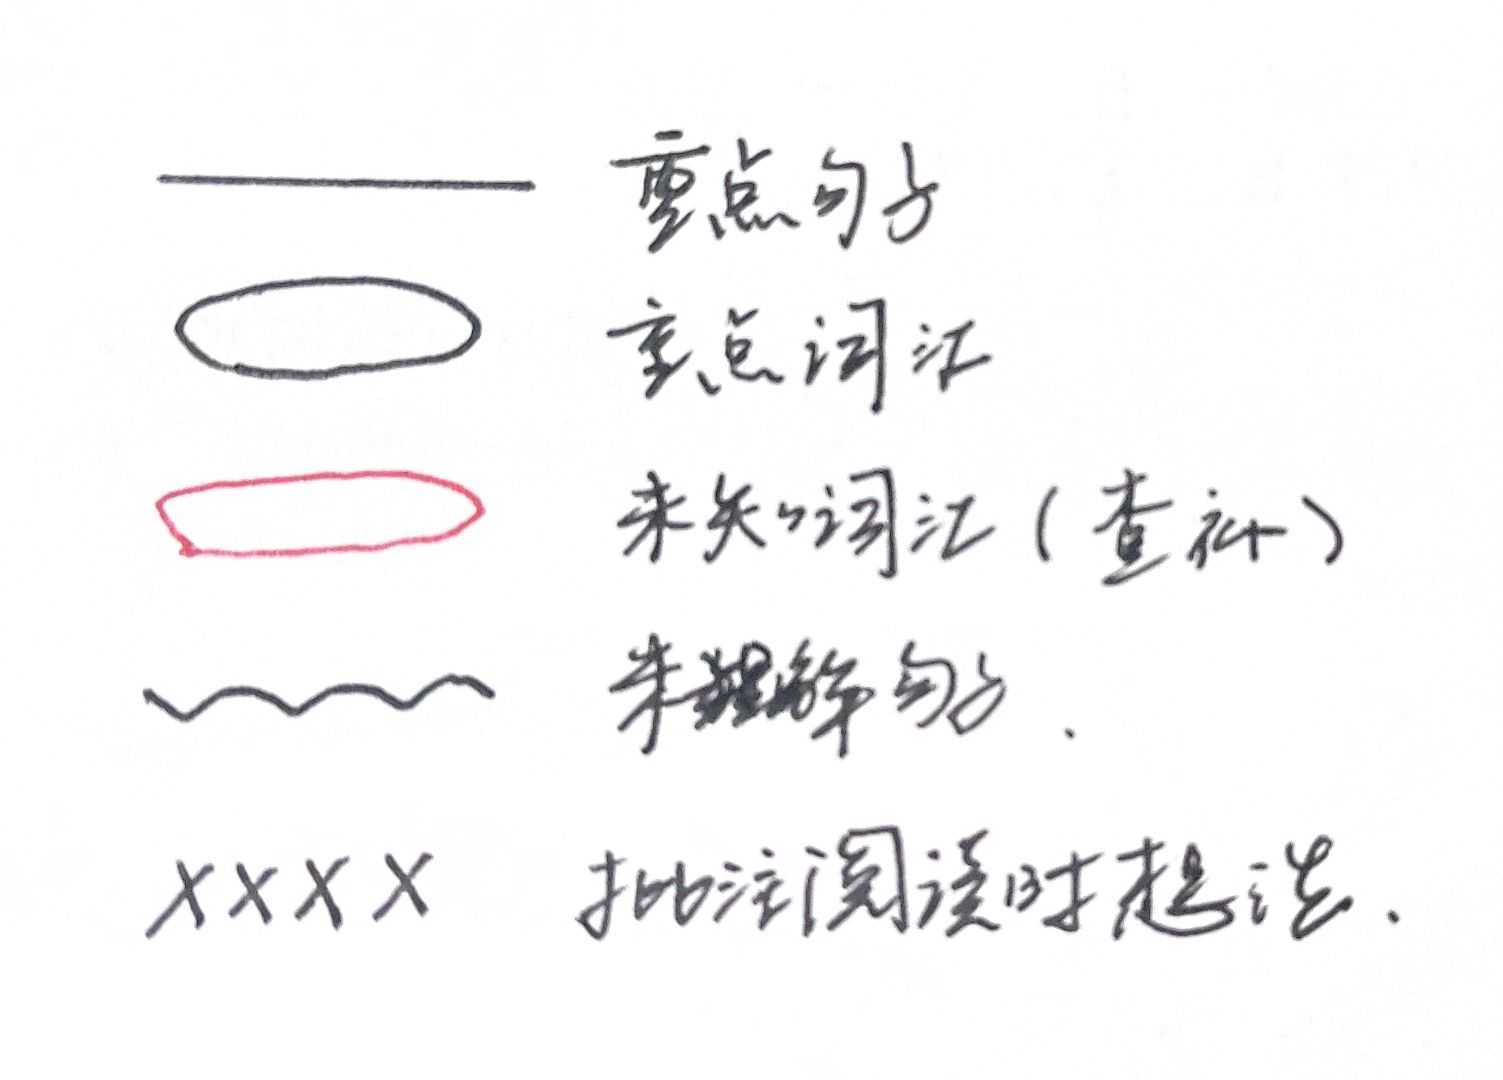 重点句子
重点词汇
未知词汇(查补)
未理解句子.
XXXX 批注阅读时想法.